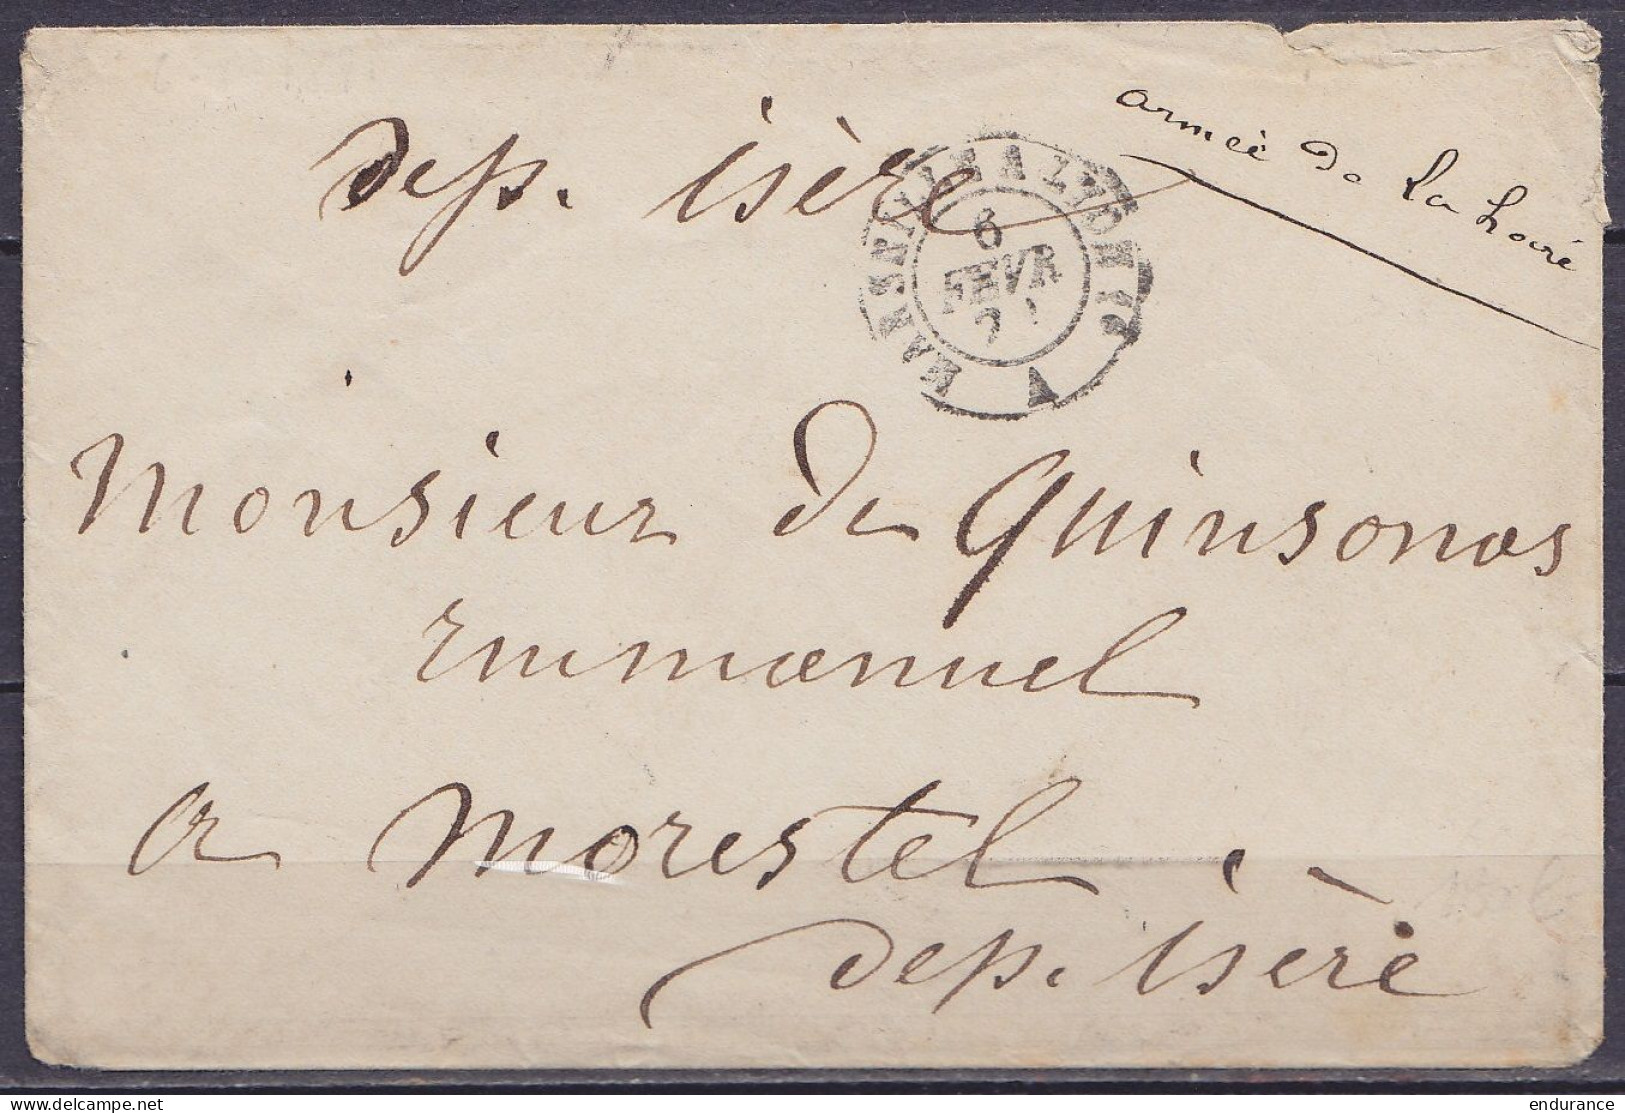 armeè de La Loire
dep. isère
MARSEILLE A LYON 1°
6
FEVR
71
A
Monsieur de Quinsonas
emmanuel
a Morestel . -
dep. isère
delcampe.net
endurance